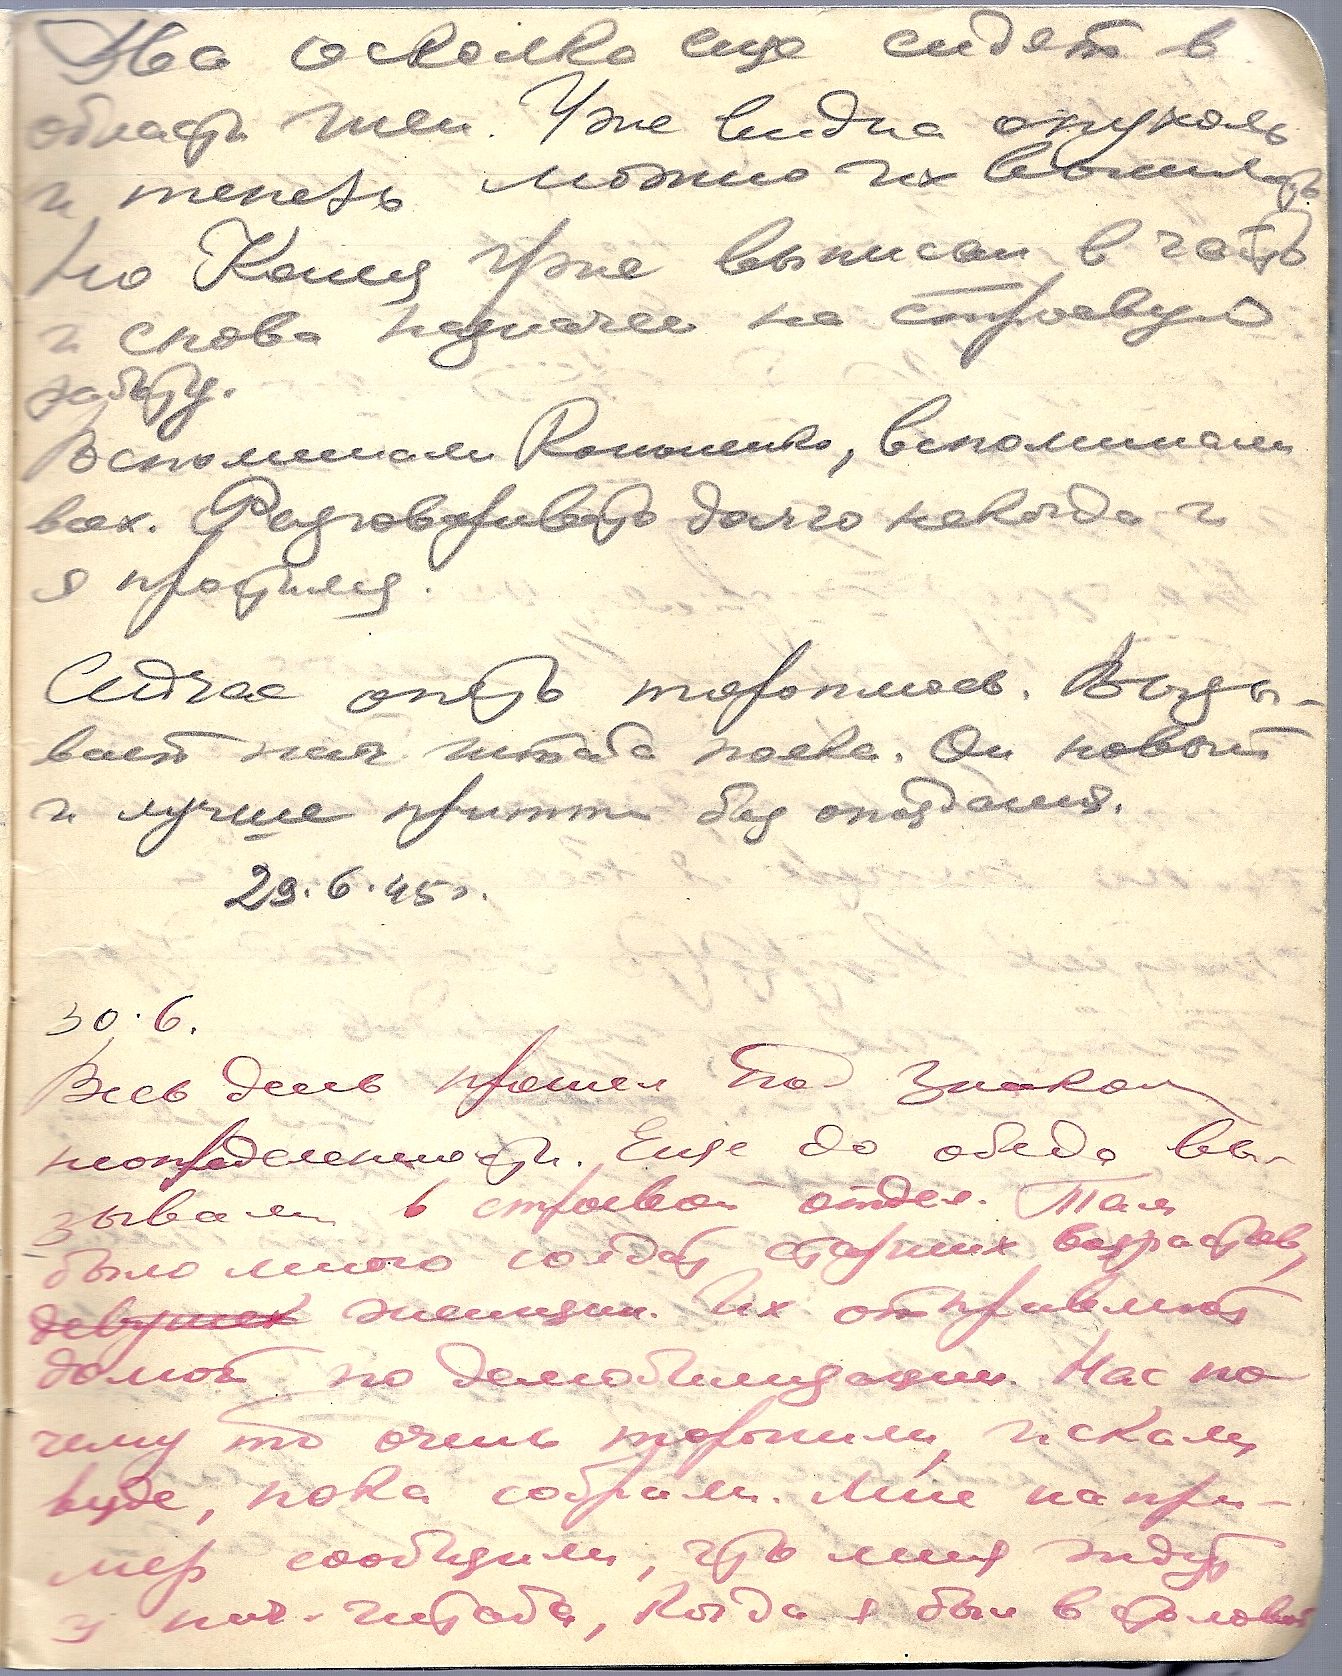 Два осколка еще сидят в
области шеи. Уже видна опухоль
и теперь можно их вынимать
Но Кация уже выписан в часть
и снова назначен на строевую
работу.
Вспоминали Кононенко, вспоминали
всех. Разговаривать долго некогда и
я простился.
Сейчас опять тороплюсь. Вызы-
вает нач штаба полка. Он новый
и лучше притти без опоздания.
29.6.45г.
30.6.
Весь день прошел под знаком
неопределенности. Еще до обеда вы-
зывали в строевой отдел. Там
было много солдат старших возрастов,
девушек женщин. Их отправляют
домой по демобилизации. Нас по
чему то очень торопили, искали
везде, пока собрали. Мне напри-
мер сообщили, что меня ждут
у нач. штаба, когда я был в столовой